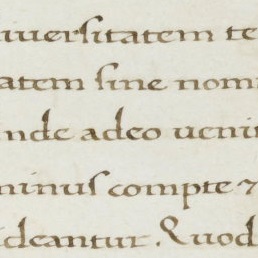 iuersitatem te
atem sine nomi
inde adeo uenit
minus compte &
ideantur. Quod